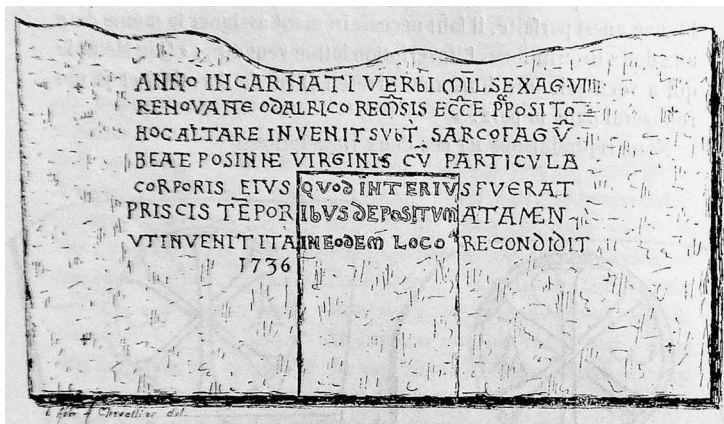 ANNO INCARNATI VERbI M̅I̅L SEXAG VIIII
RENOVANTE ODALRICO REM̅SIS ECC̅E P̅POSITO
HOC ALTARE INVENIT SVbT̅ SARCOFAGV̅
BEATE POSINNE VIRGINIS CV̅ PARTICVLA
CORPORIS EIVS QVOD INTERIVS FVERAT
PRISCIS TE̅PORIbVS DEPOSITVM ATAMEN
VT INVENIT ITA IN EODEM̅ LOCO RECONDIDIT
1736
Chevallier del.